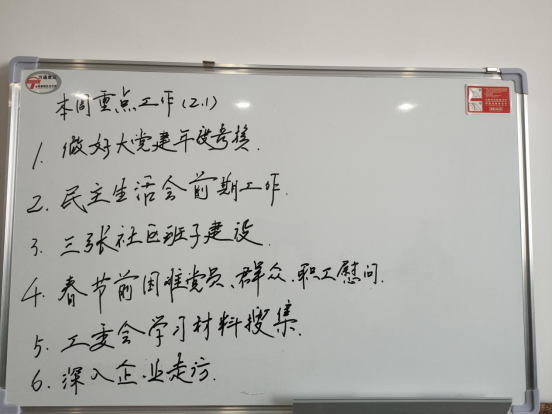 本周重点工作(2.1)
1. 做好大党建年度考核.
2. 民主生活会前期工作.
3. 三张社区班子建设.
4. 春节前困难党员、群众、职工慰问.
5. 工委会学习材料搜集.
6. 深入企业走访.